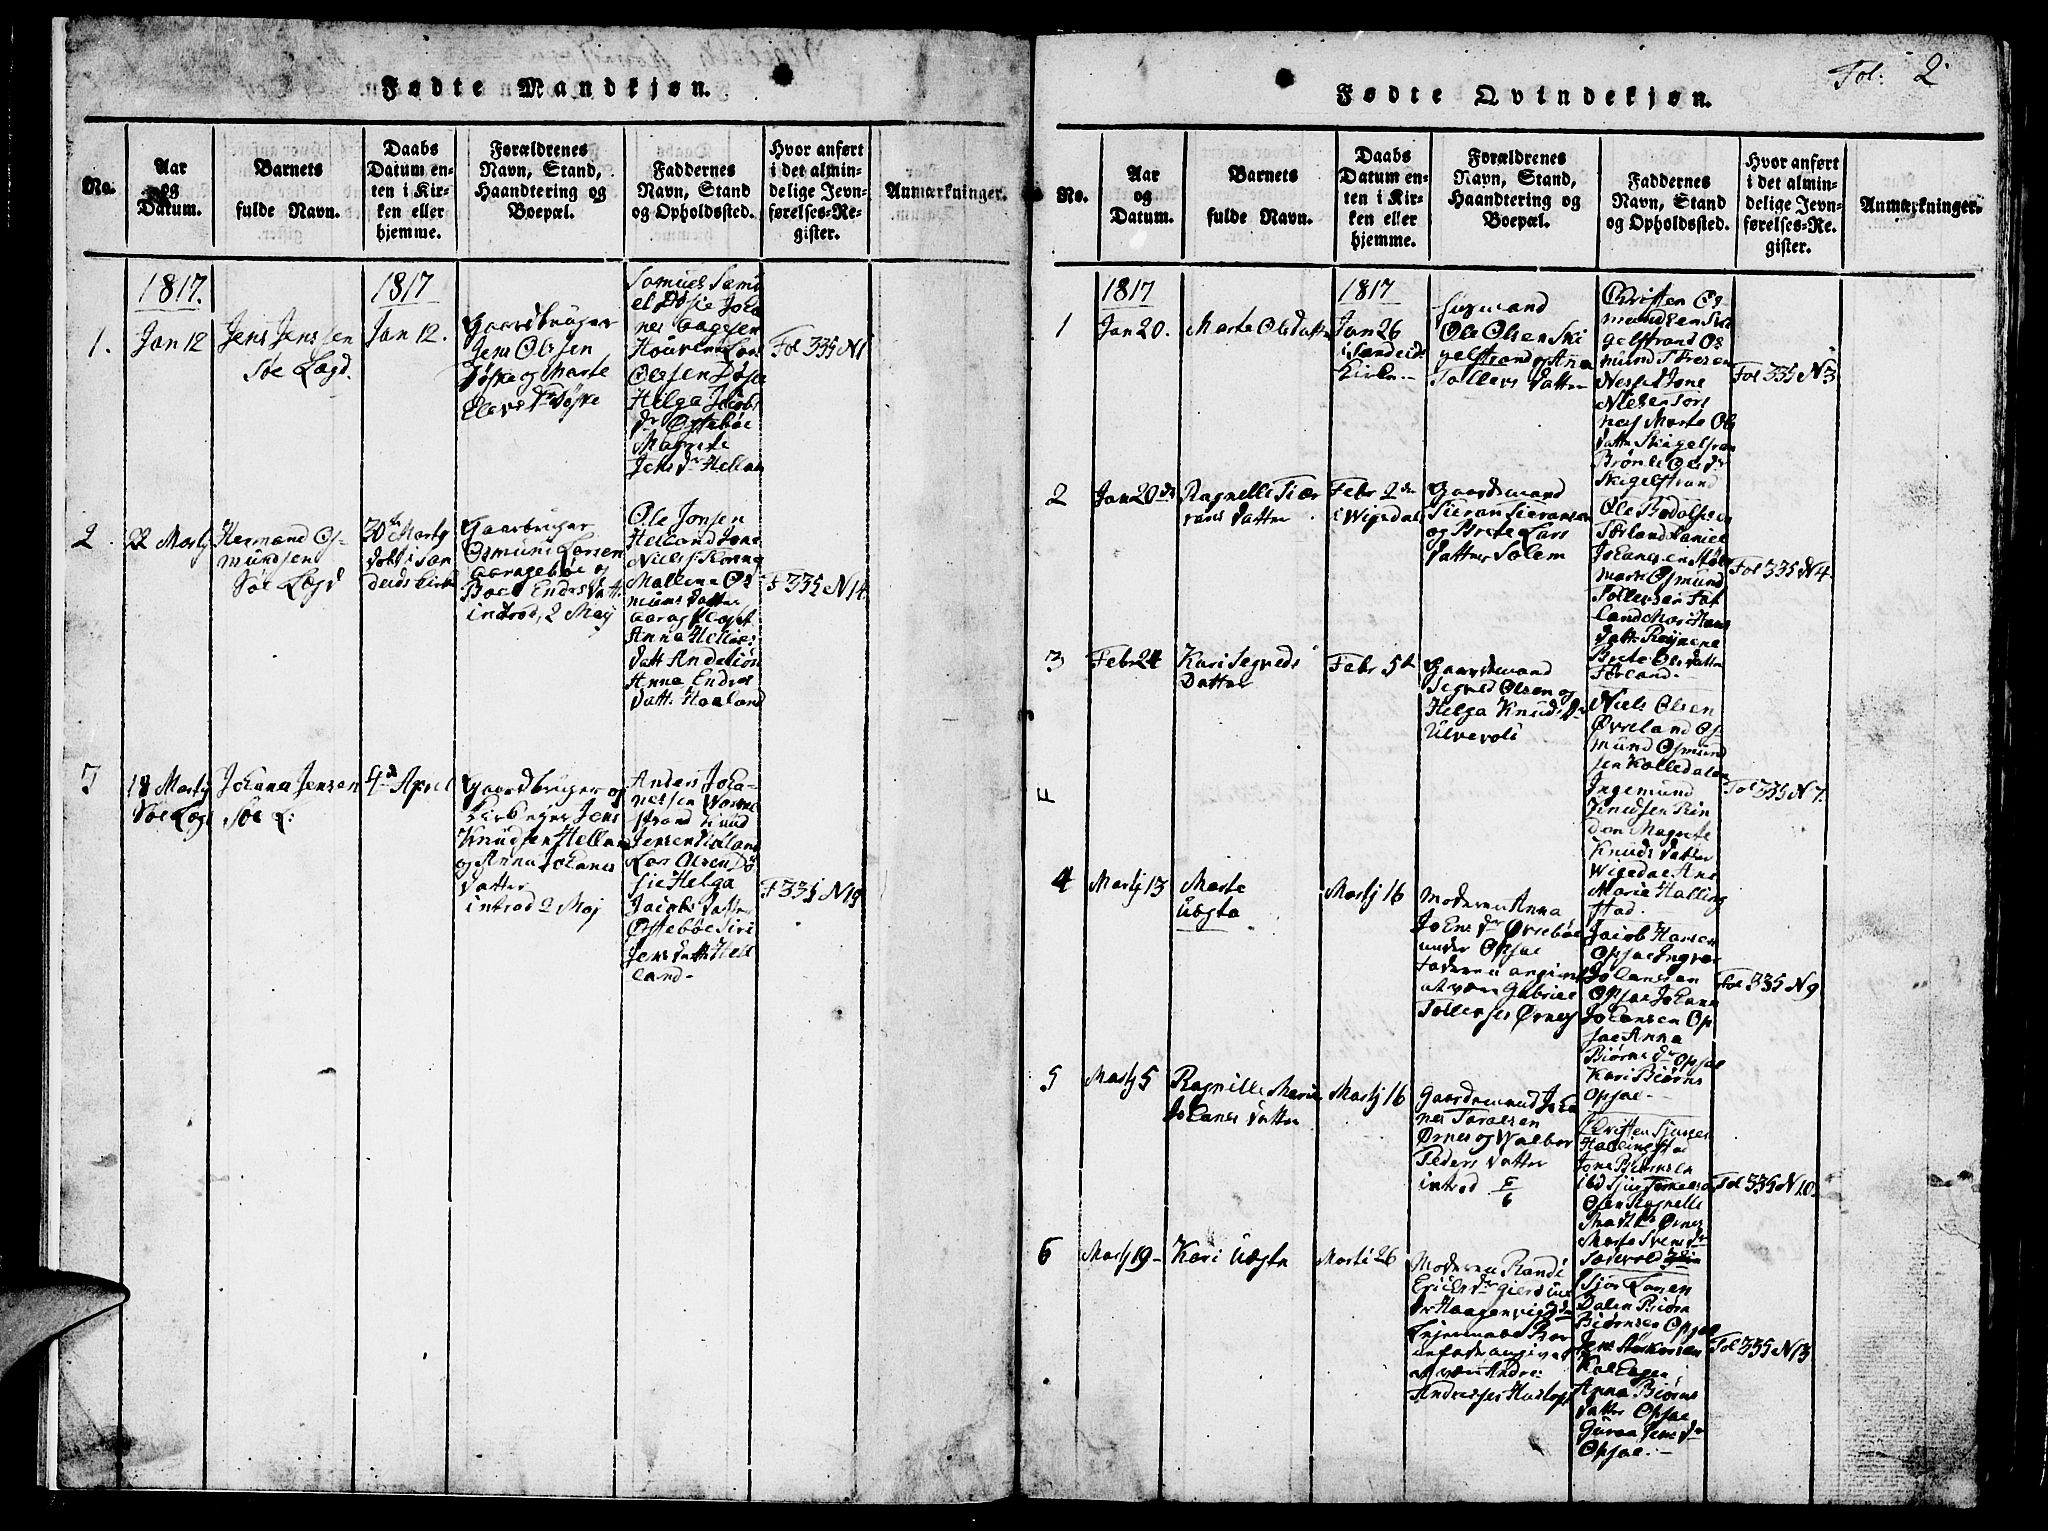 Fol: 2
Fødte Mandkjøn.
No.
Aar
og
Datum.
Barnets
fulde Navn.
Daabs
Datum en-
ten i Kir-
ken eller
hjemme.
Forældrenes
Navn, Stand,
Haandtering og
Boepæl.
Faddernes
Navn, Stand
og Opholdssted.
Hvor anført
i det almin-
delige Jevn-
førelses-Re-
gister.
Anmærkninger.
1817.
1817
1.
Jan 12
Jens Jenssen
Søe Lægd.
Jan 12.
Gaardbruger
Jens Olsen
Døske og Marte
Elevs Dr Døske
Samuel Samu
el Døsie Joha
nes Aagesen
Houven Lars
Olsen Døsie
Helga Jacobs
dr Østebøe
Magrete
Jens dr Hellan
Fol 335 N1
2.
22 Martj
Hermand Os-
mundsen
Søe Lægd
30te Martj
døbt i San
deids Kirke
Gaarbruger
Osmund Larsen
Aaragebøe og
Boel Endes datt.
introd, 2 Maj
Ole Jonsen
Helland Jone
Niels.
Malline Os
munds datter
Anna Hellies
datt
Anna Endes
datt: Haaland
F 335 N 14.
3
18 Martj
Søe Lægd
Johana Jensen
Søe L:
4de April
Gaardbruger og
Kirkeejer Jens
Knudsen Hellan
og Anna Johanes
datter
introd 2 Maj
Anders Joha-
nessen
strand Knud
Jensen
Lars Olsen Dø
sie Helga
Jacobs datter
Østebøe Siri
Jens datt. Hel
land-
F 335 N 19
Fødte Qvindekjøn.
No.
Aar
og
Datum.
Barnets
fulde Navn.
Daabs
Datum en-
ten i Kir-
ken eller
hjemme.
Forældrenes
Navn, Stand,
Haandtering og
Boepæl.
Faddernes
Navn, Stand
og Opholdssted.
Hvor anført
i det almin-
delige Jevn-
førelses-Re-
gister.
Anmærkninger.
1817
1817
1
Jan 20.
Marte Olsdatter
Jan 26
i Sandeids
Kirke.-
Ole Olsen Ski
gelstrand og Ana
Tollevs datter
Christen Os
mundsen Ski
gelstrand Os
mund
Nesse Jone
Nielsen
Marte Ols
datter Skigelstran
Ols dr
Skigelstrand
Fol 335 N 3
2
Jan 20de
Ragnille Tiær
rans datter
Febr 2den
i Wigedal
Gaardmand
Tieran Tieransen
og Brete Lars
datter Solem
Ole Rodolpsen
Førland Daniel
Johanesen Støle
mark Osmund
Tollevsen
land Mari Hans
datt:
Berte Olsdatter
Førland.-
Fol 335 N 4.
3
Febr 24
Kari Segveds
Datter
Febr 5te
Gaardmand
Segved Olsen og
Helga Knuds Dr
Ulvevoli
Niels Olsen
Øvreland Os
mund Osmund
sen Kolledalen
Ingemund
Knudsen Rin
den Magrete
Knuds datter
Wigedal Ane
Marie Halling
stad.
Fol 335 N 7.
4
Martj 13
Marte
Uægta
Martj 16
Moderen Anna
Johns dr Øvrebøe
under Opsae
Faderen angiven
at være Gabriel
Tollevsen Ørnes
Jacob Hansen
Opsae Ingvar
Johansen
Opsae Johann
Johansen Op
sae Anna
Biørns dr Opsae
Kari Biørns
Opsae.-
Fol 335 N 9
5
Martj 5
Ragnille Marie
Johanes datter
Martj 16
Gaardmand Joha
nes Taralsen
Ørnes og Walbor
Peders datter
introd 5/6
Christen Sjursen
Hallingstad
Jone Biørnsen
ibd Sjur
Olsen Ragnille
Ørnes
Marte Svens dr
Fol 335 N 10.
6
Martj 19-
Kari Uægte
Marti 26
Moderen Randi
Erichs dr
Haagenvig
angivet
at være Andre:
Andresen
Sjør Larsen
Dalen Biørn
Biørnsen Opsae
Jens
Anna Biørns
datter Opsae
Guroe Jens dr
Opsae.-
Fol 335 N 13